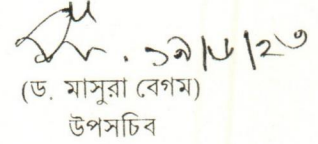 ১৯/৮/২৩
(ড. মাসুরা বেগম)
উপসচিব